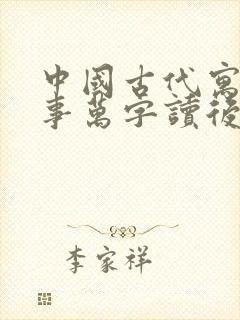 中國古代寓
事萬字讀後
李家祥